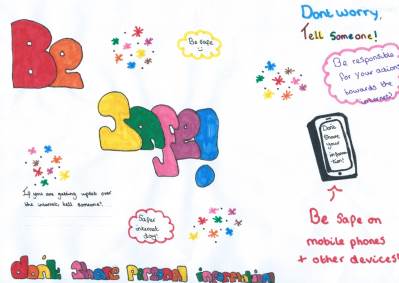 Be
Safe!
Be safe
Dont worry,
Tell someone!
Be responsible
for your actions
towards the
internet!
Don't
Share
your
inform
-tion!
If you are getting upset over
the internet, tell someone!
Safer
internet
day!
Be safe on
mobile phones
+ other devices!
don't share personal information